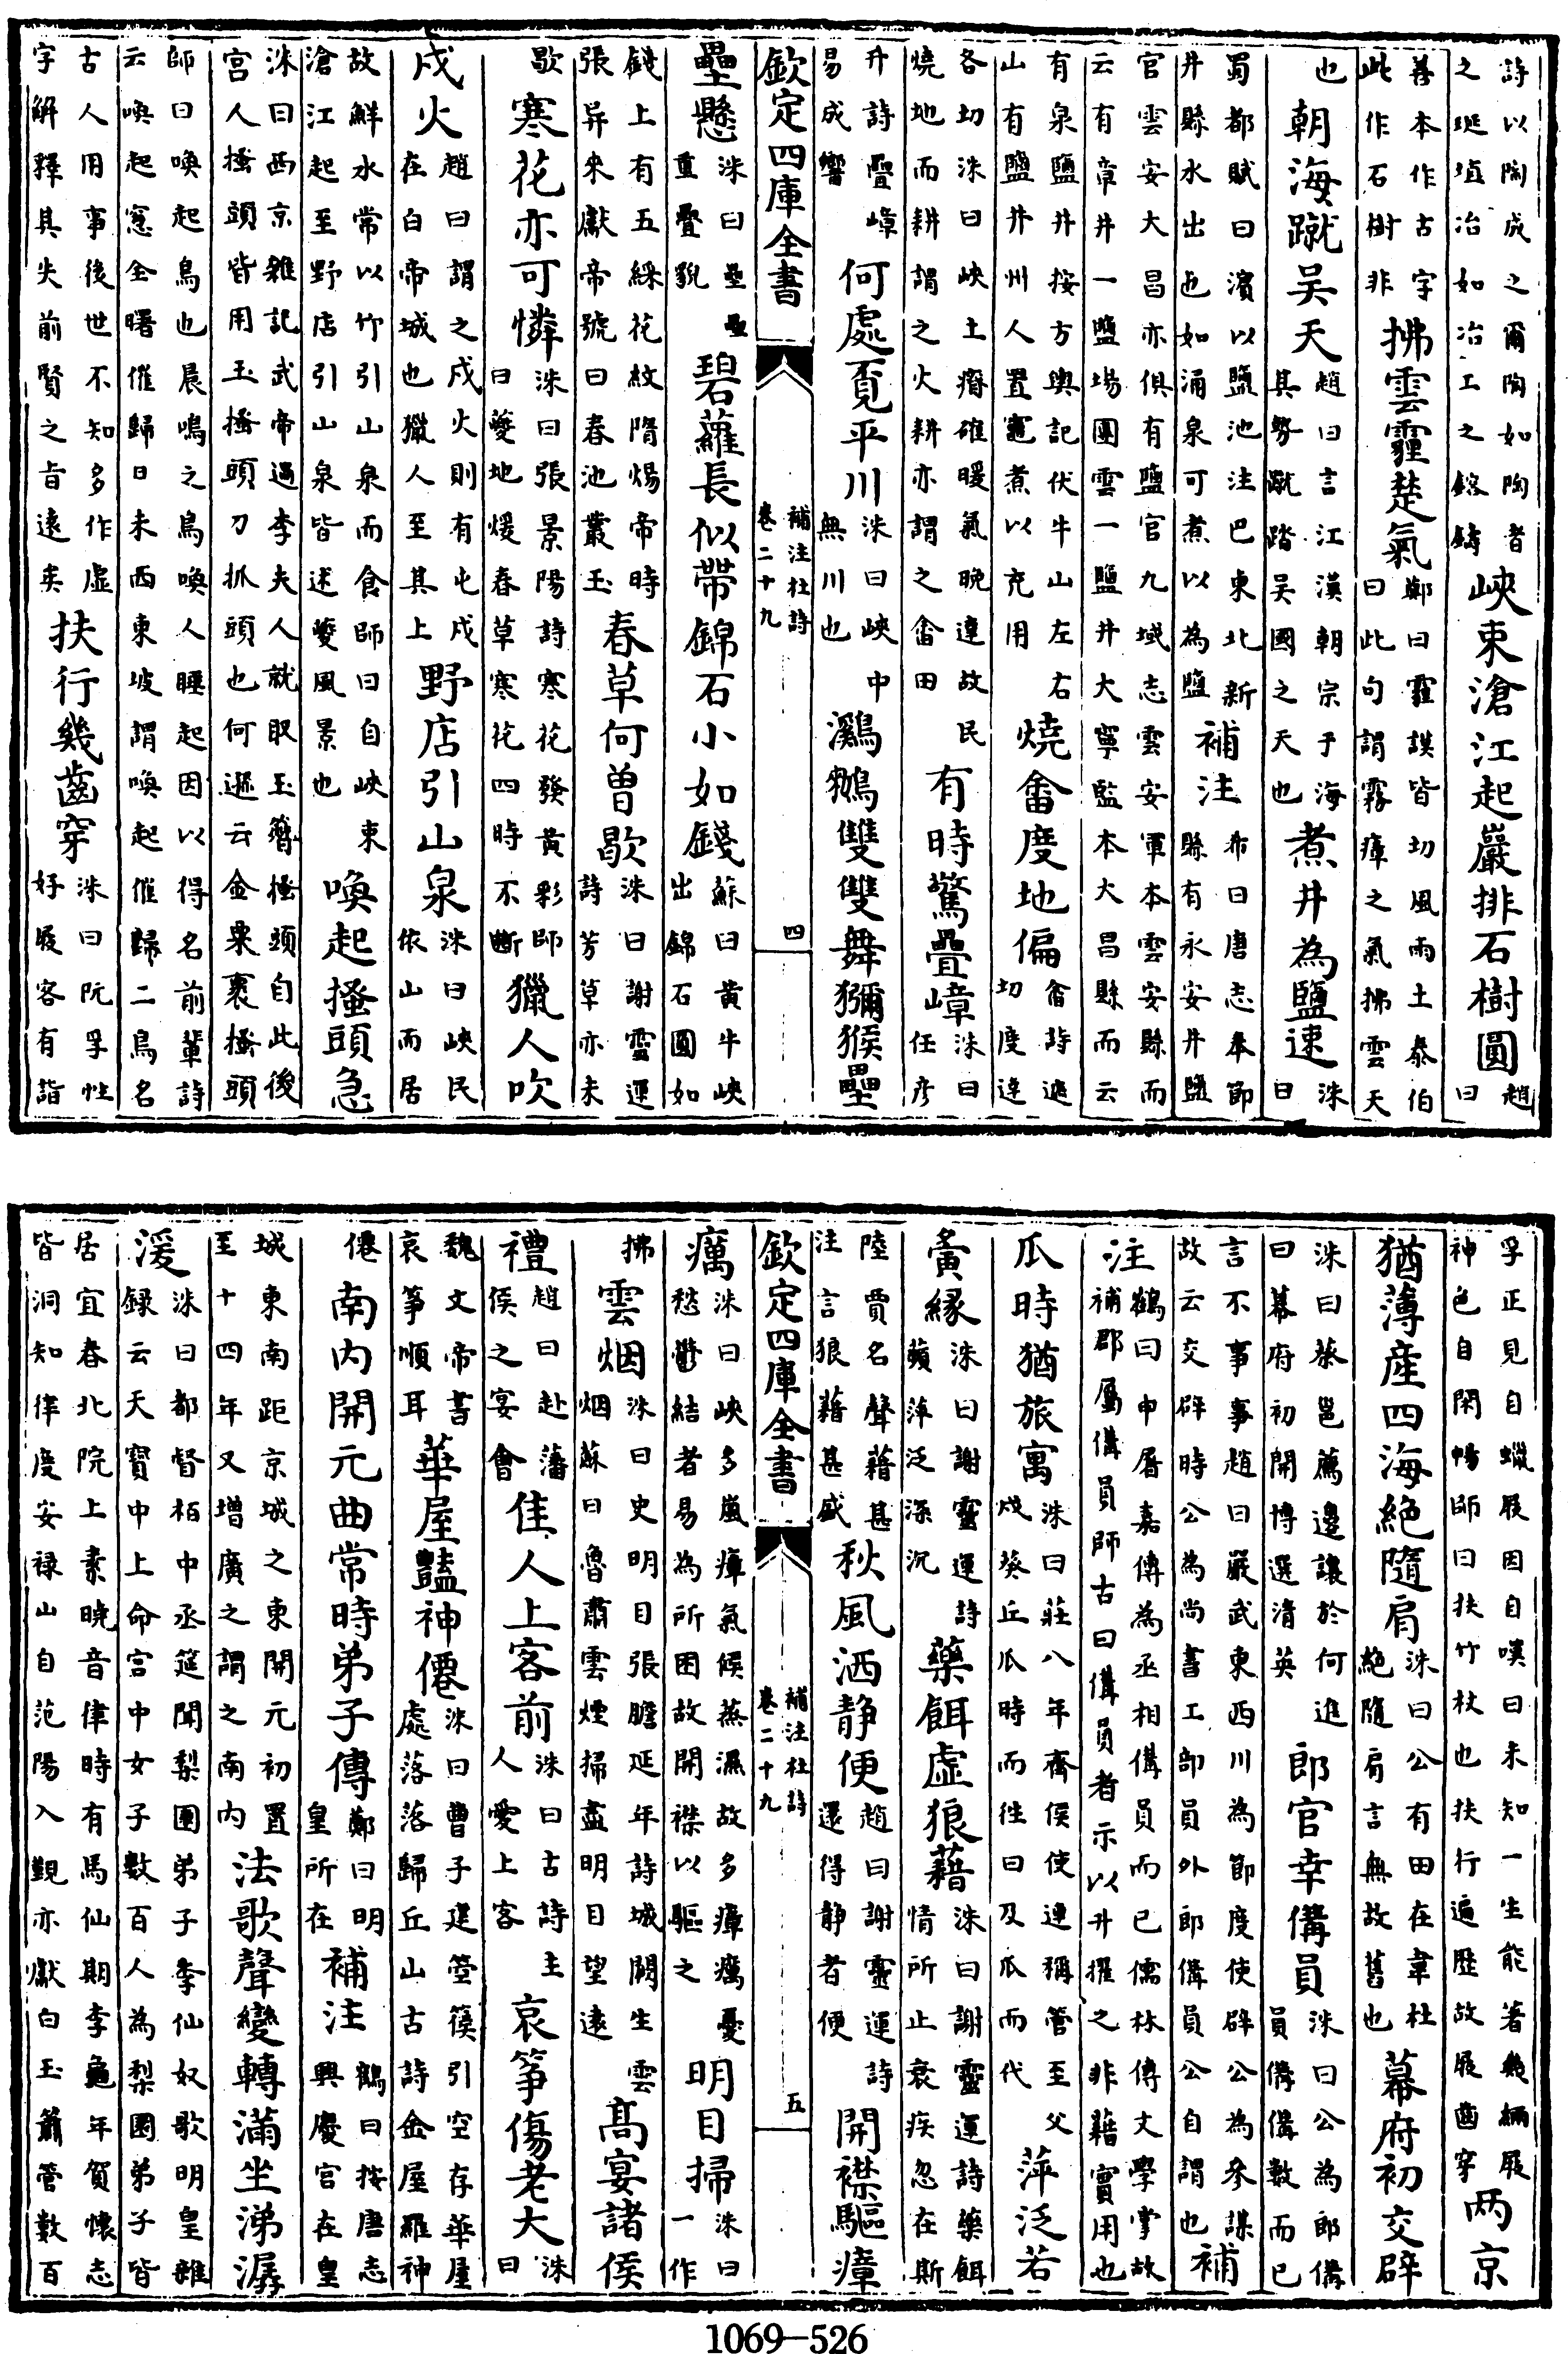 詩以陶成之甭陶如陶者之埏埴冶如冶工之鎔鑄峽束滄江起巖排石樹圓趙曰
善本作古字此作石樹非拂雲霾楚氣鄭曰霾謨皆切風雨土泰伯曰此句謂霧瘴之氣拂雲天
也朝海蹴吳天趙曰言江漢朝宗于海其勢蹴踏吳國之天也煮井為鹽速洙曰
蜀都賦曰濱以鹽池注巴東北新井縣水出地如涌泉可煮以為鹽補注希曰唐志奉節縣有永安井鹽
官雲安大昌亦俱有鹽官九域志雲安軍本雲安縣而云有章井一鹽場團雲一鹽井大寧監本大昌縣而云
有泉鹽井按方輿記伏牛山左右山有鹽井州人置竈煮以充用燒畬度地偏畬詩遮切度達
各切洙曰峽土瘠確暖氣晚達故民燒地而耕謂之火耕亦謂之畬田有時驚疊嶂洙曰任彦
升詩疊嶂易成響何處覓平川洙曰峽中無川也鸂鶒雙雙舞獼猴壘
欽定四庫全書 補注杜詩卷二十九 四
壘懸洙曰壘壘重疊貌碧蘿長似帶錦石小如錢蘇曰黄牛峽出錦石圓如
錢上有五綵花紋隋煬帝時張异來獻帝號曰春池叢玉春草何曽歇洙曰謝靈運詩芳草亦未
歇寒花亦可憐洙曰張景陽詩寒花發黄彩師曰夔地煖春草寒花四時不斷獵人吹
戍火趙曰謂之戍火則有屯戍在白帝城也獵人至其上野店引山泉洙曰峽民依山而居
故鮮水常以竹引山泉而食師曰自峽束滄江起至野店引山泉皆述夔風景也喚起搔頭急
洙曰西京雜記武帝過李夫人就取玉簪搔頭自此後宫人搔頭皆用玉搔頭刀抓頭也何遜云金粟裹搔頭
師曰喚起鳥也晨鳴之鳥喚人睡起因以得名前輩詩云喚起窓全曙催歸日未西東坡謂喚起催歸二鳥名
古人用事後世不知多作虚字解釋其失前賢之旨遠矣扶行幾齒穿洙曰阮孚性好屐客有詣
孚正見自蠟屐因自嘆曰未知一生能著幾緉屐神色自閑暢師曰扶竹杖也扶行遍歴故屐齒穿两京
猶薄産四海絶隨肩洙曰公有田在韋杜絶隨肩言無故舊也幕府初交辟
洙曰蔡邕薦邊讓於何進曰幕府初開博選清英郎官幸備員洙曰公為郎備員備備數而已
言不事事趙曰嚴武東西川為節度使辟公為參謀故云交辟時公為尚書工部員外郎備員公自謂也補
注鶴曰申屠嘉傳為丞相備員而已儒林傳文學掌故補郡屬備員師古曰備員者示以升擢之非藉實用也
瓜時猶旅寓洙曰莊八年齊侯使連稱管至父戍葵丘瓜時而往曰及瓜而代萍泛若
夤緣洙曰謝靈運詩蘋萍泛深沉藥餌虚狼藉洙曰謝靈運詩藥餌情所止衰疾忽在斯
陸賈名聲藉甚注言狼藉甚盛秋風洒静便趙曰謝靈運詩還得静者便開襟驅瘴
欽定四庫全書 補注杜詩卷二十九 五
癘洙曰峽多嵐瘴氣候蒸濕故多瘴癘憂愁鬱結者易為所困故開襟以驅之明目掃洙曰一作
拂雲烟洙曰史明目張膽延年詩城闕生雲烟蘇曰魯肅雲煙掃盡明目望遠高宴諸侯
禮趙曰赴藩侯之宴會佳人上客前洙曰古詩主人愛上客哀筝傷老大洙曰
魏文帝書哀筝順耳華屋豔神僊洙曰曹子建箜篌引空存華屋處落落歸丘山古詩金屋羅神
僊南内開元曲常時弟子傳鄭曰明皇所在補注鶴曰按唐志興慶宫在皇
城東南距京城之東開元初置至十四年又增廣之謂之南内法歌聲變轉滿坐涕潺
湲洙曰都督柏中丞筵聞梨園弟子李仙奴歌明皇雜録云天寳中上命宫中女子數百人為梨園弟子皆
居宜春北院上素曉音律時有馬仙期李龜年賀懷志皆洞知律度安禄山自范陽入覲亦獻白玉簫管數百
1069—526